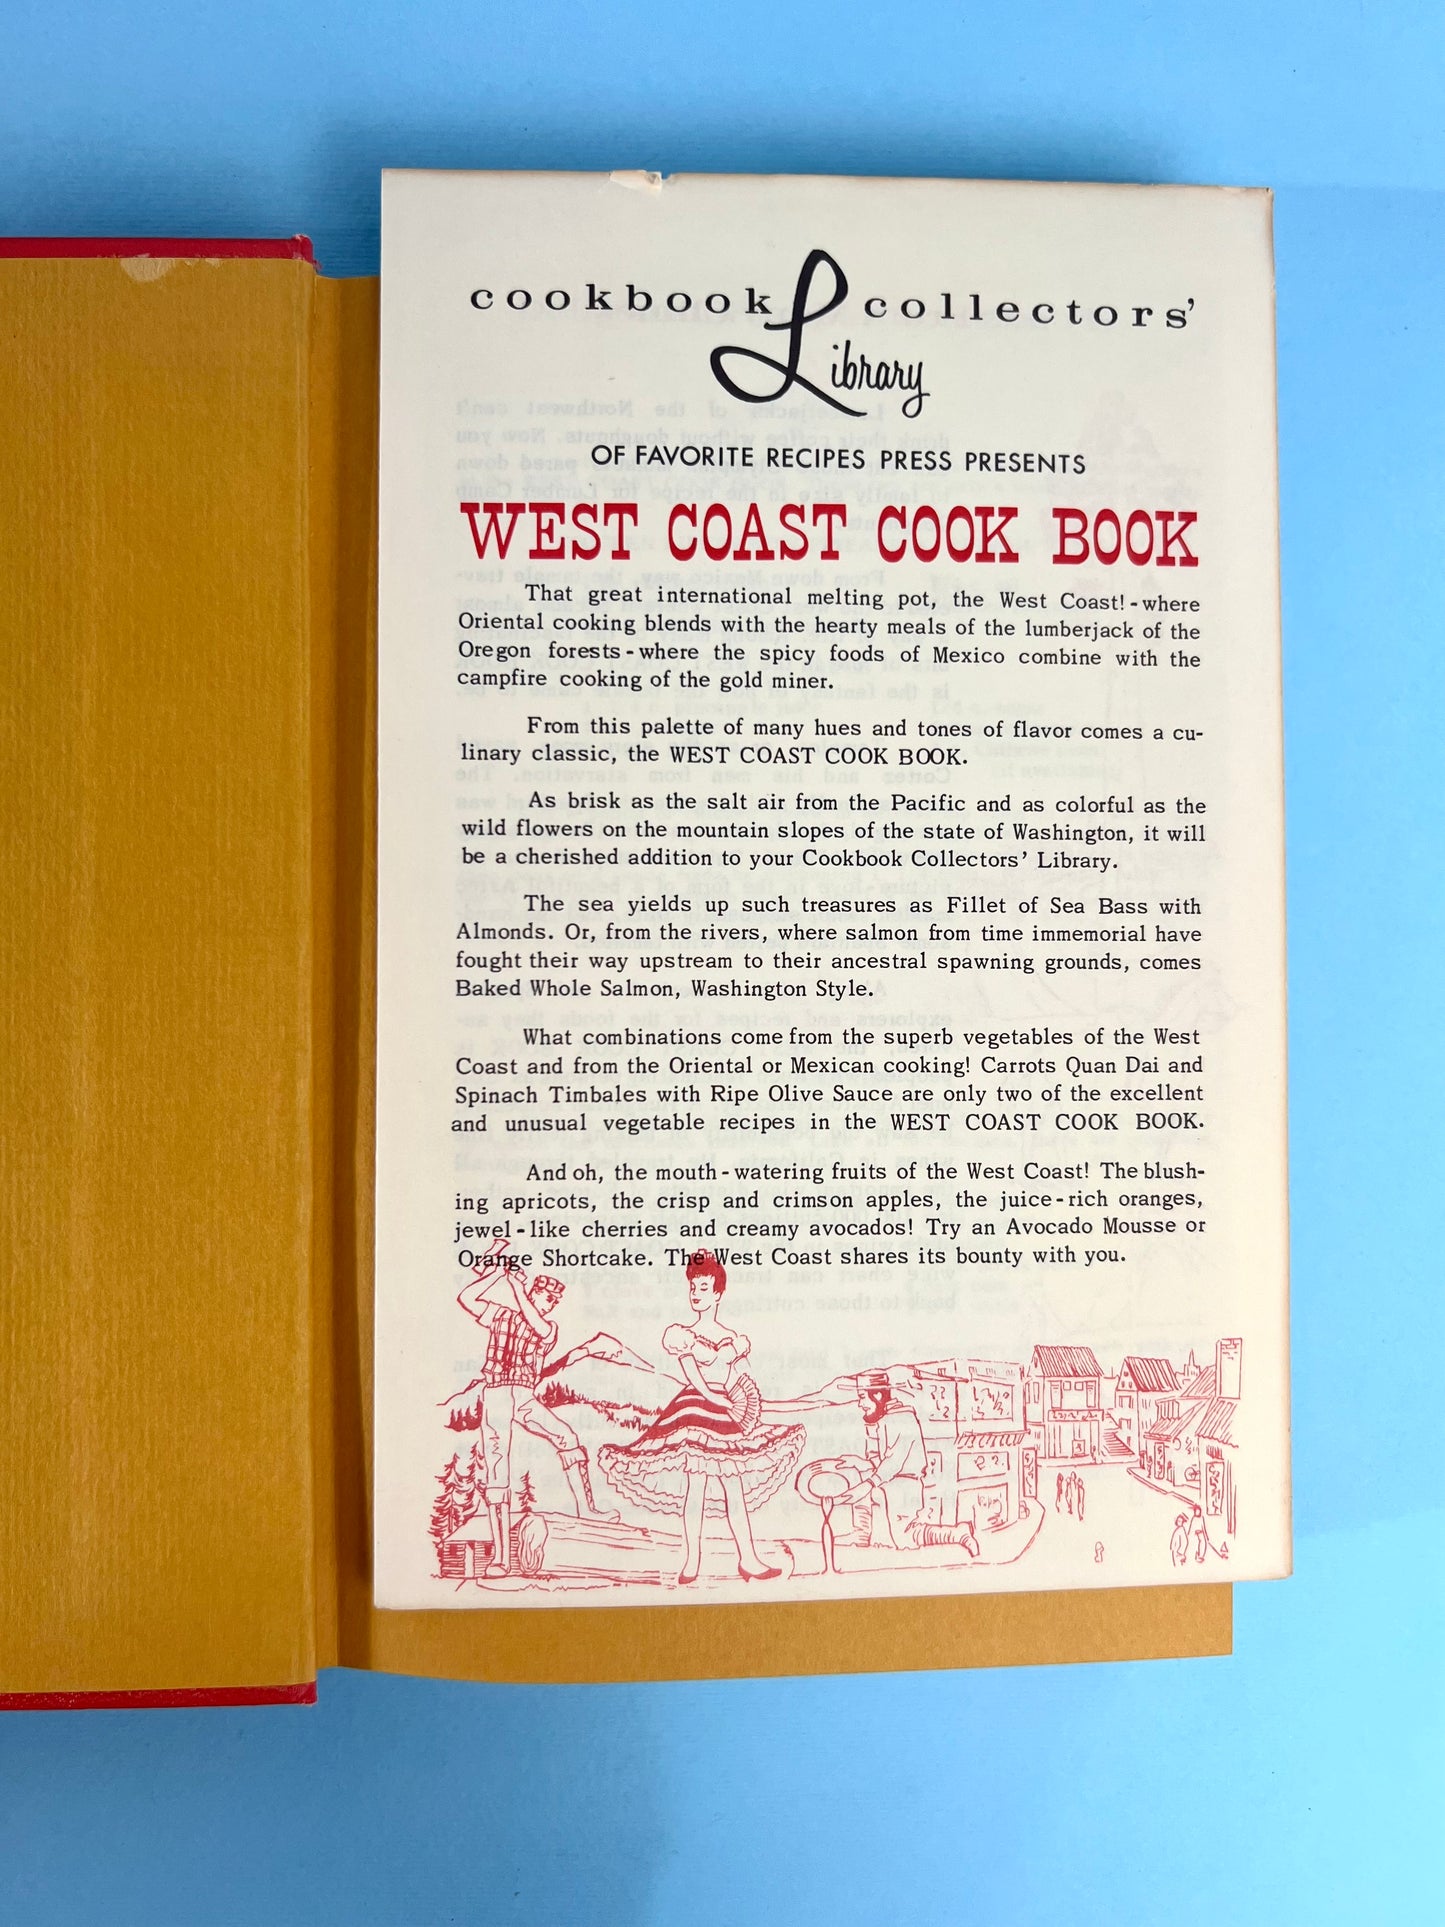 cookbook collectors'
Library
OF FAVORITE RECIPES PRESS PRESENTS
WEST COAST COOK BOOK
That great international melting pot, the West Coast! - where
Oriental cooking blends with the hearty meals of the lumberjack of the
Oregon forests - where the spicy foods of Mexico combine with the
campfire cooking of the gold miner.
From this palette of many hues and tones of flavor comes a cu-
linary classic, the WEST COAST COOK BOOK.
As brisk as the salt air from the Pacific and as colorful as the
wild flowers on the mountain slopes of the state of Washington, it will
be a cherished addition to your Cookbook Collectors' Library.
The sea yields up such treasures as Fillet of Sea Bass with
Almonds. Or, from the rivers, where salmon from time immemorial have
fought their way upstream to their ancestral spawning grounds, comes
Baked Whole Salmon, Washington Style.
What combinations come from the superb vegetables of the West
Coast and from the Oriental or Mexican cooking! Carrots Quan Dai and
Spinach Timbales with Ripe Olive Sauce are only two of the excellent
and unusual vegetable recipes in the WEST COAST COOK BOOK.
And oh, the mouth - watering fruits of the West Coast! The blush-
ing apricots, the crisp and crimson apples, the juice - rich oranges,
jewel - like cherries and creamy avocados! Try an Avocado Mousse or
Orange Shortcake. The West Coast shares its bounty with you.